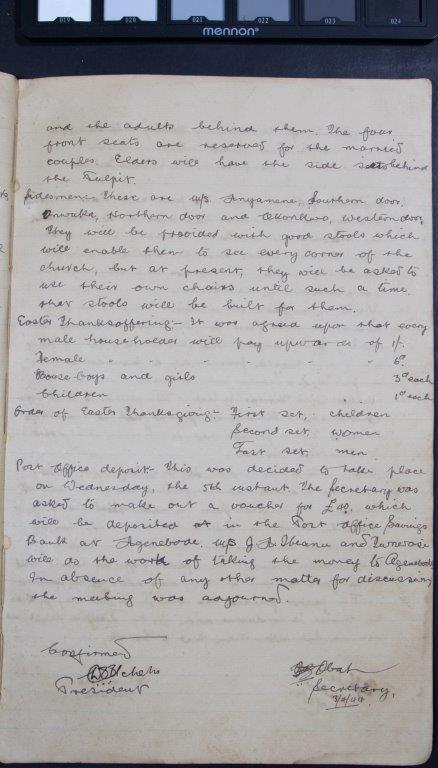 019 020 021 022 023 024
mennon
and the adults behind them. The four
front seats are reserved for the married
couples. Elders will have the side seats behind
the Pulpit.
Sidesmen:- These are M/S. Anyamene, Southern door,
Onwuka, Northern door and Okonkwo, Western door,
They will be provided with good stools which
will enable them to see every corner of the
church, but at present, they will be asked to
use their own chairs until such a time
that stools will be built for them.
Easter Thanksoffering:- It was agreed upon that every
male householder will pay upwards of 1/-
Female " " " " 6d.
House-Boys and girls 3d each
Children 1d each
Order of Easter Thanksgiving:- First set, children
Second set women
Last set men.
Post Office deposit:- This was decided to take place
on Wednesday, the 5th instant. The Secretary was
asked to make out a voucher for £40, which
will be deposited in the Post Office Savings
Bank at Agenebode. M/S J. A. Ibeanu and
will do the work of taking the money to Agenebode
In absence of any other matter for discussion
the meeting was adjourned.
Confirmed
Ucheh
President
Obah
Secretary,
3/4/44